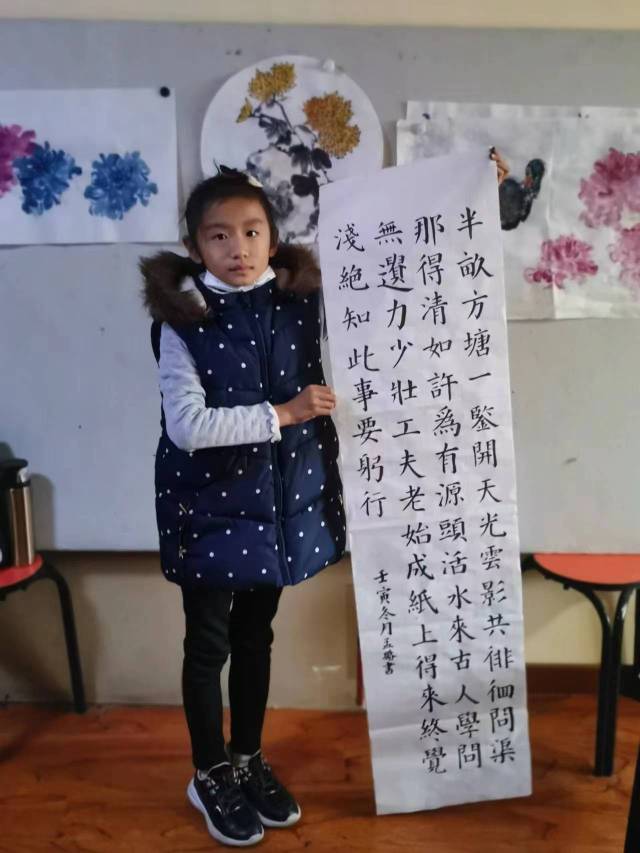 半畝方塘一鑒開天光雲影共徘徊問渠
那得清如許爲有源頭活水來古人學問
無遺力少壯工夫老始成紙上得來終覺
淺絶知此事要躬行
壬寅冬月孟書